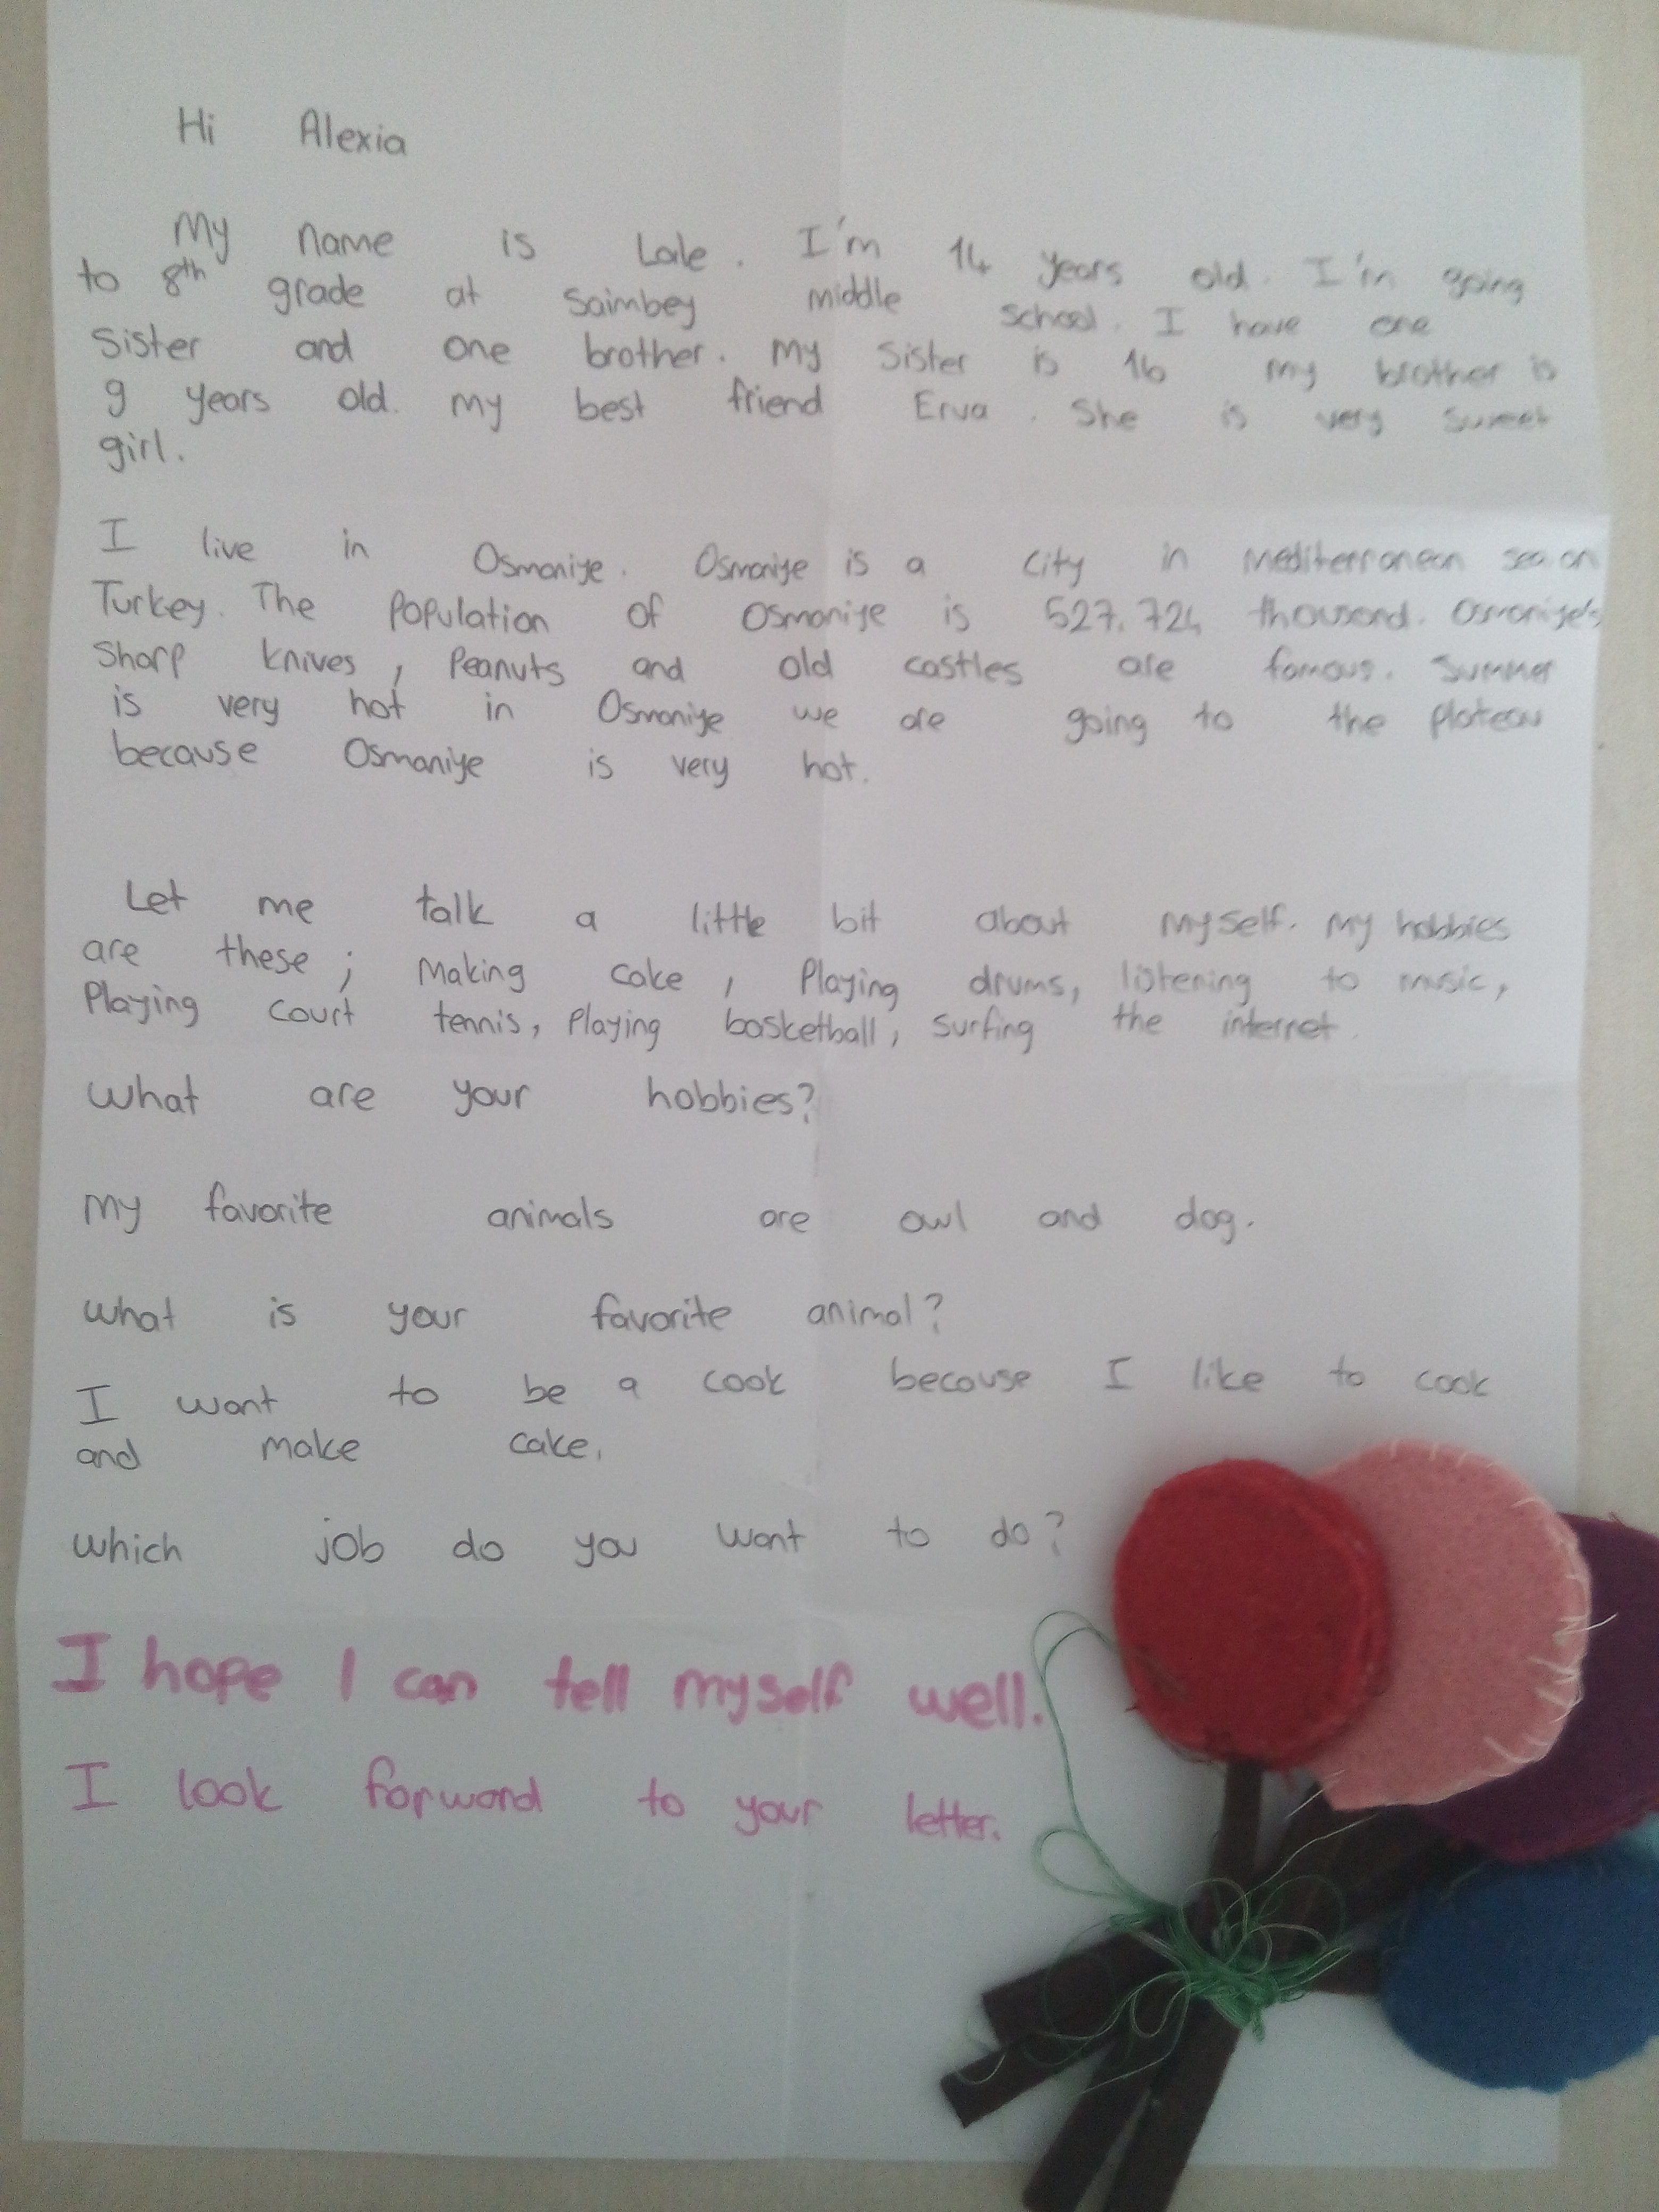 Hi Alexia
My name is Lale. I'm 14 years old. I'm going
to 8th grade at Saimbey middle school. I have one
Sister and one brother. My Sister is 16 my brother is
9 years old. My best friend Erva. She is very sweet
girl.
I live in Osmaniye. Osmaniye is a city in Mediterranean sea on
Turkey. The Population of Osmaniye is 527.724 thousand. Osmaniye's
Sharp knives, Peanuts and old castles are famous. Summer
is very hot in Osmaniye we are going to the plateau
because Osmaniye is very hot.
Let me talk a little bit about myself. My hobbies
are these; Making cake, Playing drums, listening to music,
Playing court tennis, Playing basketball, surfing the internet.
What are your hobbies?
My favorite animals are owl and dog.
what is your favorite animal?
I want to be a cook because I like to cook
and make cake.
which job do you want to do?
I hope I can tell myself well.
I look forward to your letter.